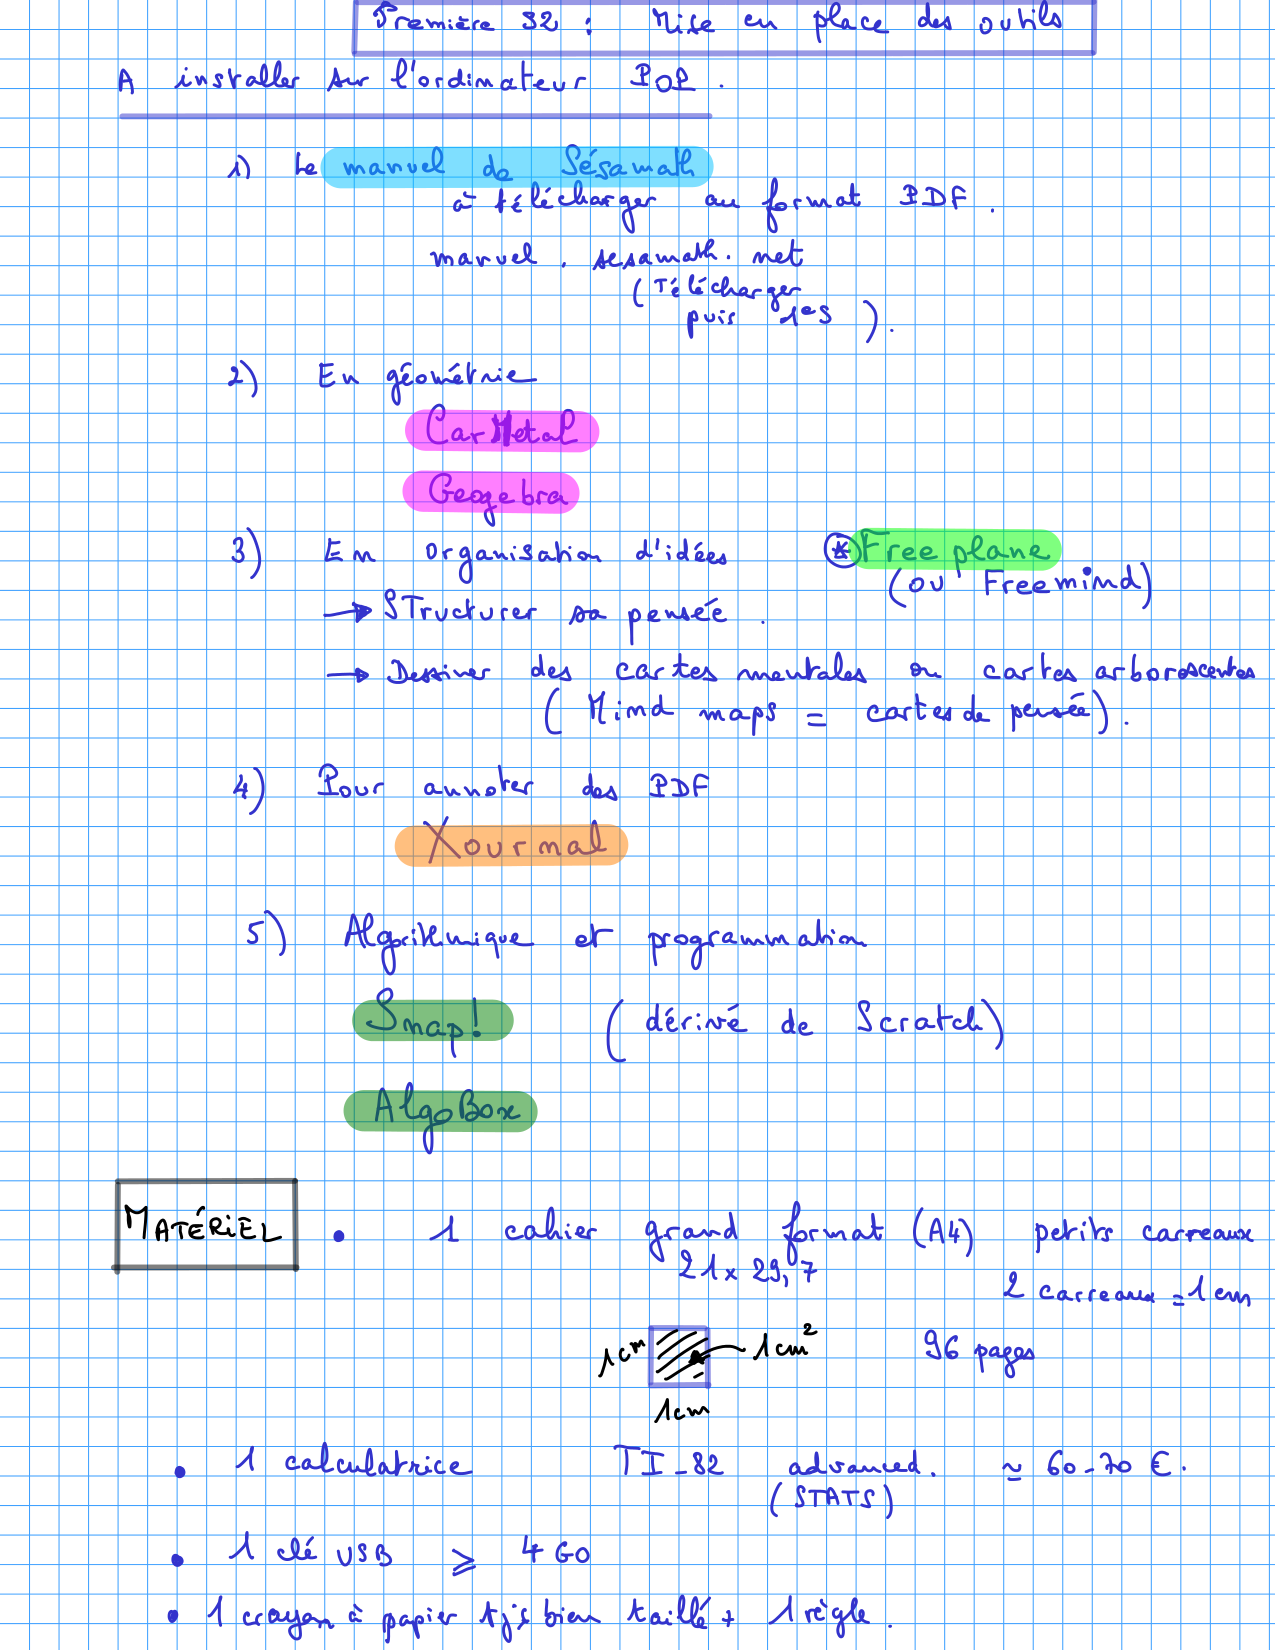 Première S2 : Mise en place des outils
A installer sur l'ordinateur POP.
1) Le manuel de Sésamath
à télécharger au format PDF.
manuel.sesamath.net
(Télécharger
puis 1eS).
2) En géométrie
CarMetal
Geogebra
3) En organisation d'idées * Freeplane
(ou Freemind)
→ Structurer sa pensée.
→ Dessiner des cartes mentales ou cartes arborescentes
(Mind maps = cartes de pensée).
4) Pour annoter des PDF
Xournal
5) Algorithmique et programmation
Snap! (dérivé de Scratch)
AlgoBox
MATÉRIEL • 1 cahier grand format (A4) petits carreaux
21 x 29,7
2 carreaux = 1 cm
1cm 1cm² 96 pages
1cm
• 1 calculatrice TI-82 advanced. ≃ 60-70 €.
(STATS)
• 1 clé USB ⩾ 4 GO
• 1 crayon à papier tjs bien taillé + 1 règle.